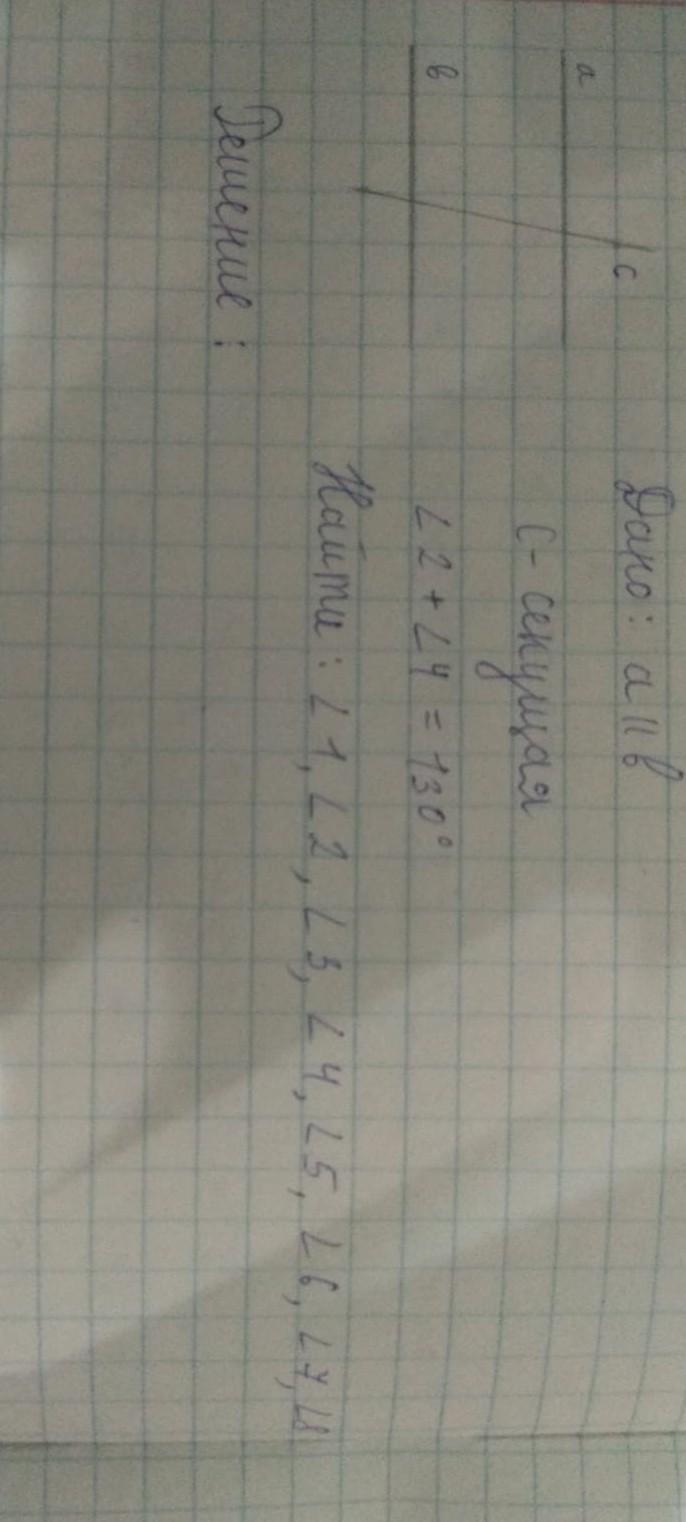 a
c
в
Дано: a || в
С - секущая
∠2 + ∠4 = 130°
Найти: ∠1, ∠2, ∠3, ∠4, ∠5, ∠6, ∠7, ∠8
Решение: